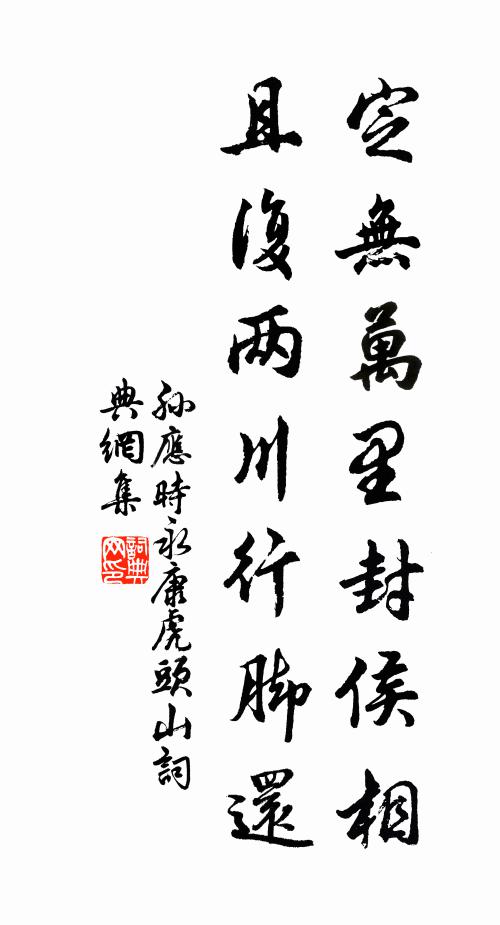 定無萬里封侯相
且復兩川行脚還
孫應時永康虎頭山詞
典網集
詞典
网印